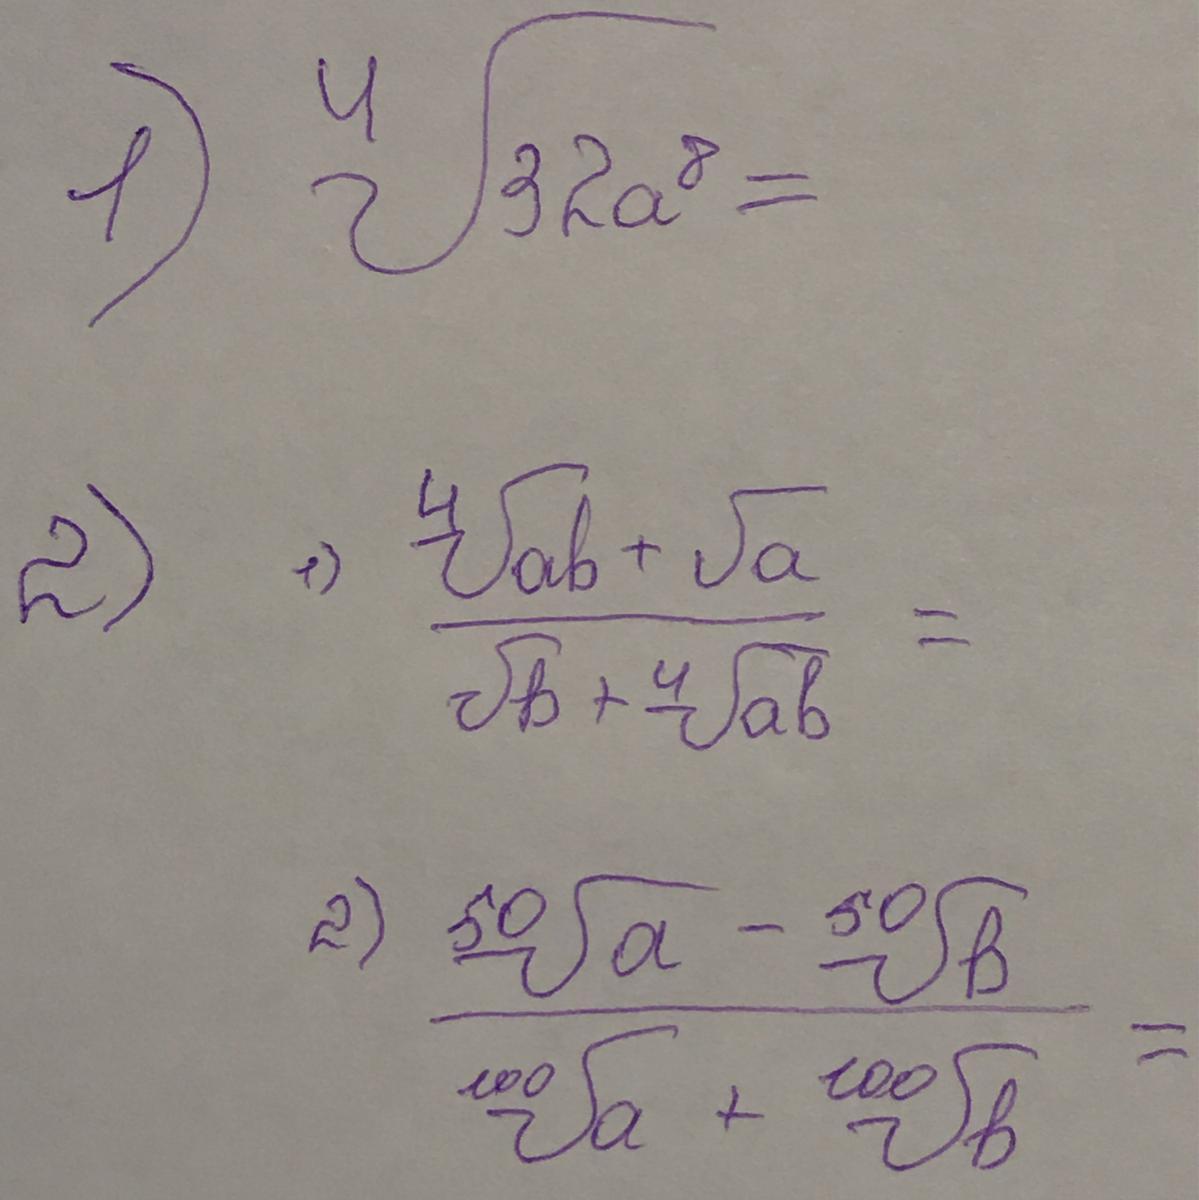 1) ⁴√32a⁸ =
2) 1) (⁴√ab + √a) / (√b + ⁴√ab) =
2) (⁵⁰√a − ⁵⁰√b) / (¹⁰⁰√a + ¹⁰⁰√b) =